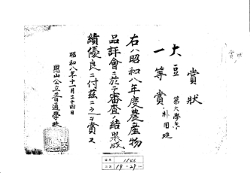 賞状
第六學年
林用現
大豆
一等賞
右ハ昭和八年度農産物
品評會ニ於テ審査ノ結果成
績優良ニ付茲ニ之ヲ賞ス
昭和八年十一月二十四日
公立普通學校